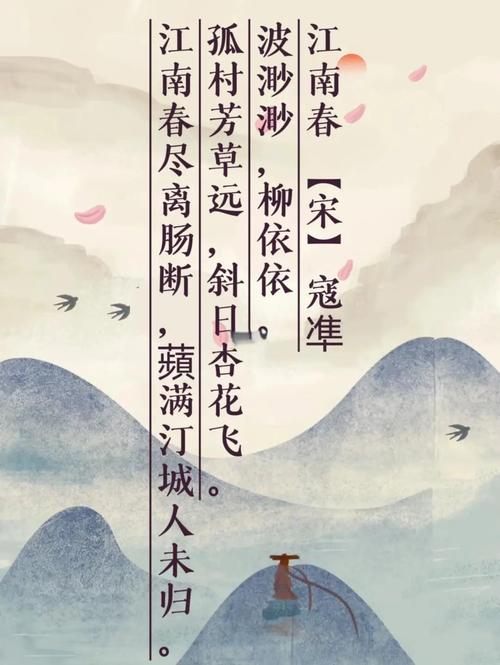 江南春 【宋】寇凖
波渺渺,柳依依。
孤村芳草远,斜日杏花飞。
江南春尽离肠断,蘋满汀城人未归。